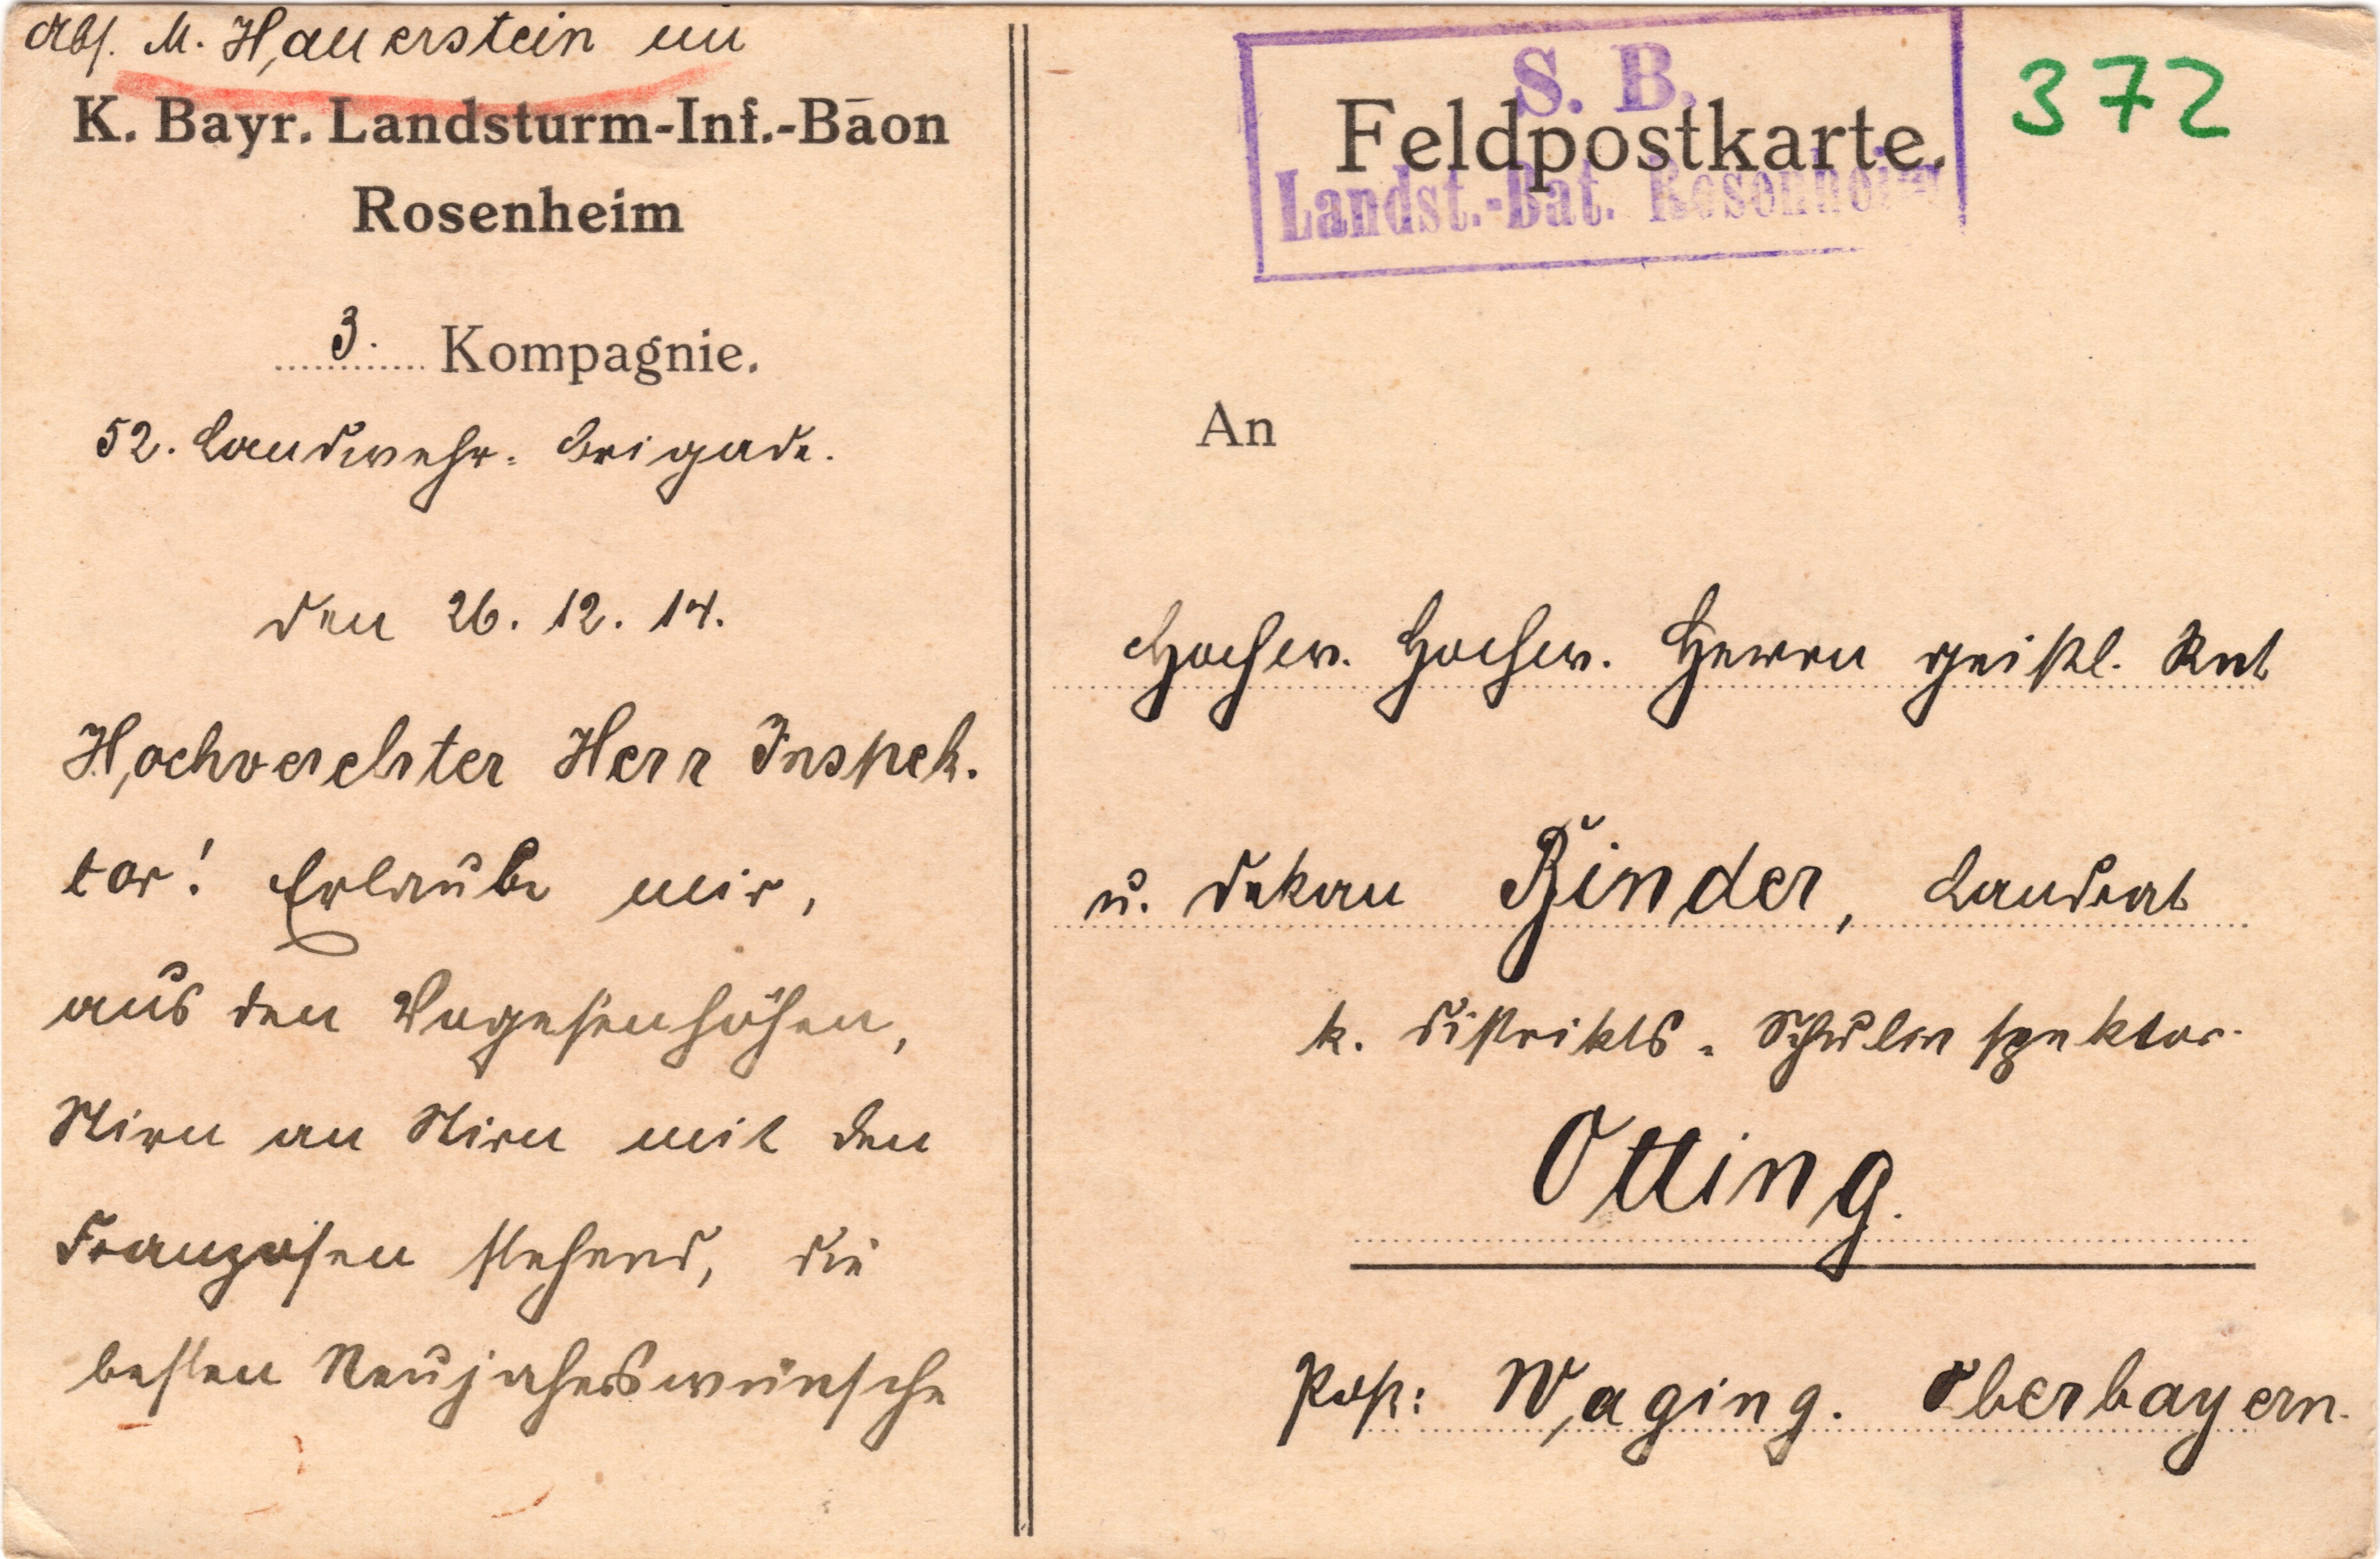 Abs. M. Hauerstein im
K. Bayr. Landsturm-Inf.-Bāon
Rosenheim
3. Kompagnie.
52. Landwehr-Brigade.
den 26. 12. 14.
Hochverehrter Herr Inspek-
tor! Erlaube mir,
aus den Vogesenhöhen,
Stirn an Stirn mit den
Franzosen stehend, die
besten Neujahrswünsche
S. B.
Landst.-Bat. Rosenheim
Feldpostkarte.
372
An
Hochw. Hochw. Herrn geistl. Rat
u. Dekan Binder, Landrat
k. Distrikts-Schulinspektor
Otting.
Post: Waging. Oberbayern.